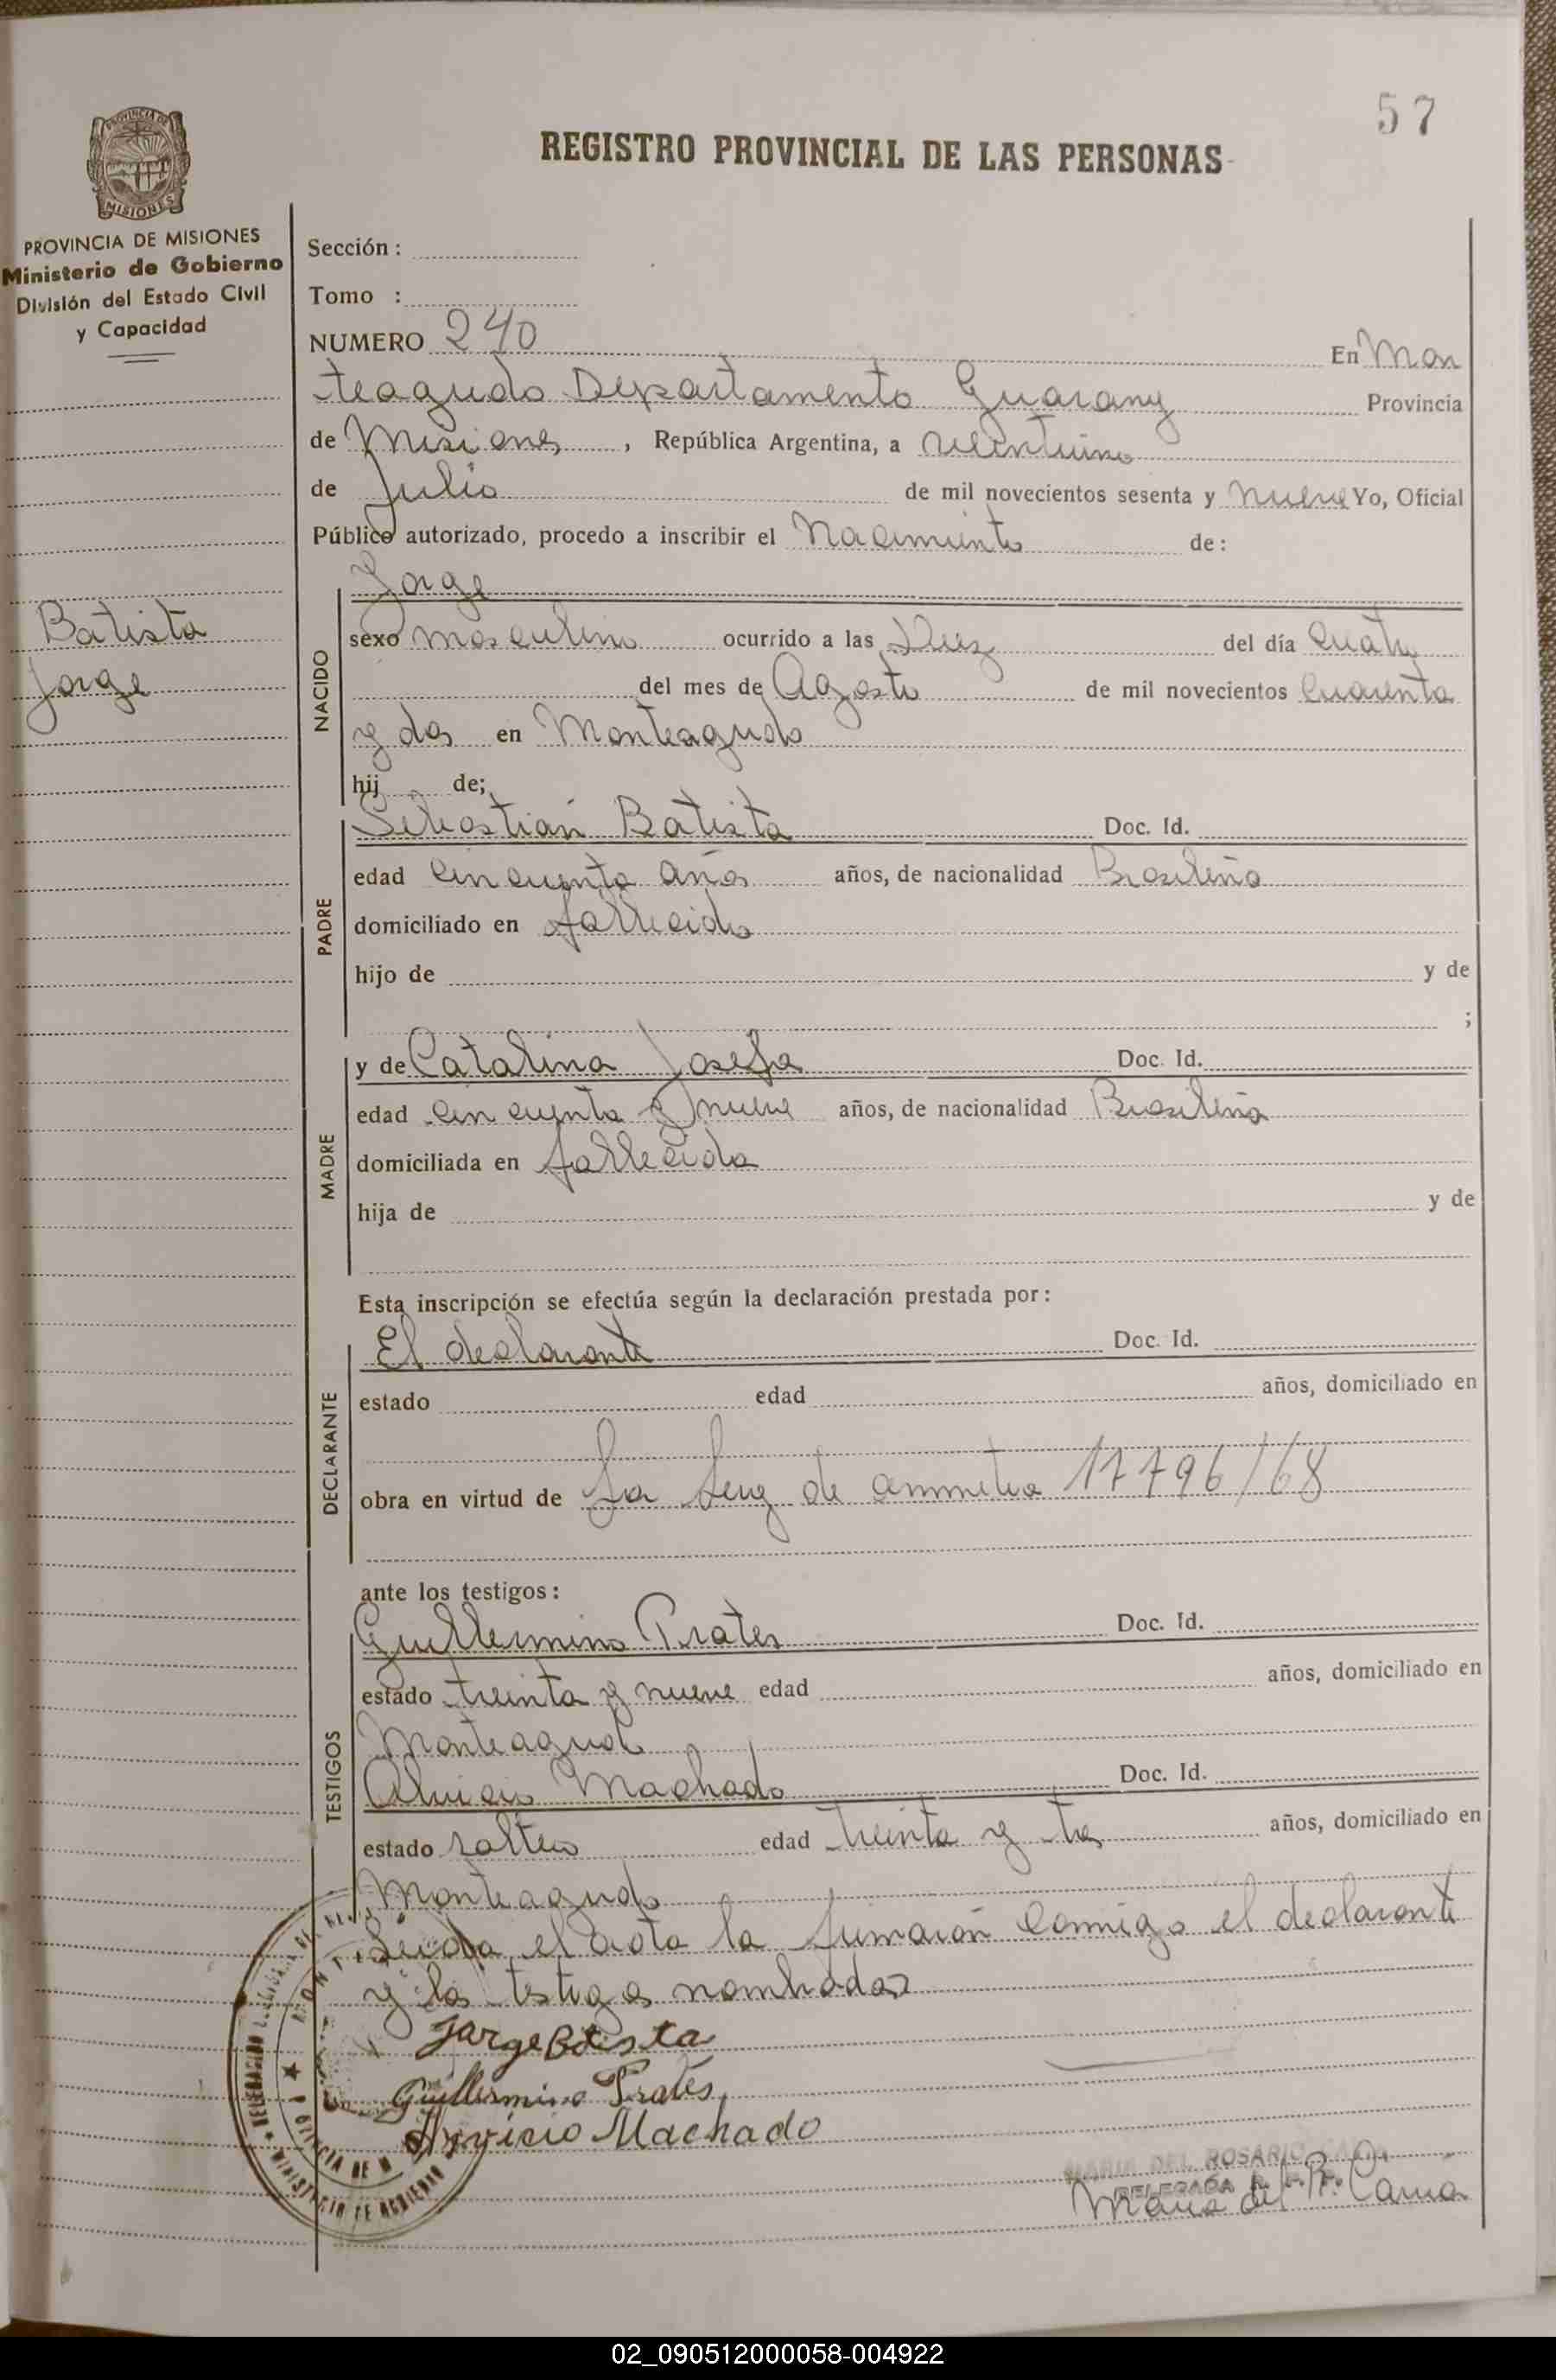 57
REGISTRO PROVINCIAL DE LAS PERSONAS
PROVINCIA DE
MISIONES
PROVINCIA DE MISIONES
Ministerio de Gobierno
División del Estado Civil
y Capacidad
Sección :
Tomo :
NUMERO 240 En Mon
teagudo Departamento Guarany Provincia
de Misiones, República Argentina, a veintiuno
de Julio de mil novecientos sesenta y nueve Yo, Oficial
Público autorizado, procedo a inscribir el Nacimiento de:
Batista
Jorge
NACIDO
Jorge
sexo masculino ocurrido a las Diez del día cuatro
del mes de Agosto de mil novecientos cuarenta
y dos en Monteagudo
hij de;
PADRE
Sebastián Batista Doc. Id.
edad cincuenta años años, de nacionalidad Brasileño
domiciliado en fallecido
hijo de y de
;
MADRE
y de Catalina Josefa Doc. Id.
edad cincuenta y nueve años, de nacionalidad Brasileña
domiciliada en fallecida
hija de y de
Esta inscripción se efectúa según la declaración prestada por:
DECLARANTE
El declarante Doc. Id.
estado edad años, domiciliado en
obra en virtud de La Ley de amnistia 17796/68
ante los testigos:
TESTIGOS
Guillermino Prates Doc. Id.
estado treinta y nueve edad años, domiciliado en
Monteagudo
Machado Doc. Id.
estado soltero edad treinta y tres años, domiciliado en
Monteagudo
Leida el acta la firmaron conmigo el declarante
y los testigos nombrados
Jorge Batista
Guillermino Prates
Machado
MARIA DEL ROSARIO
DELEGADA
Maria del R. Cama
02_090512000058-004922